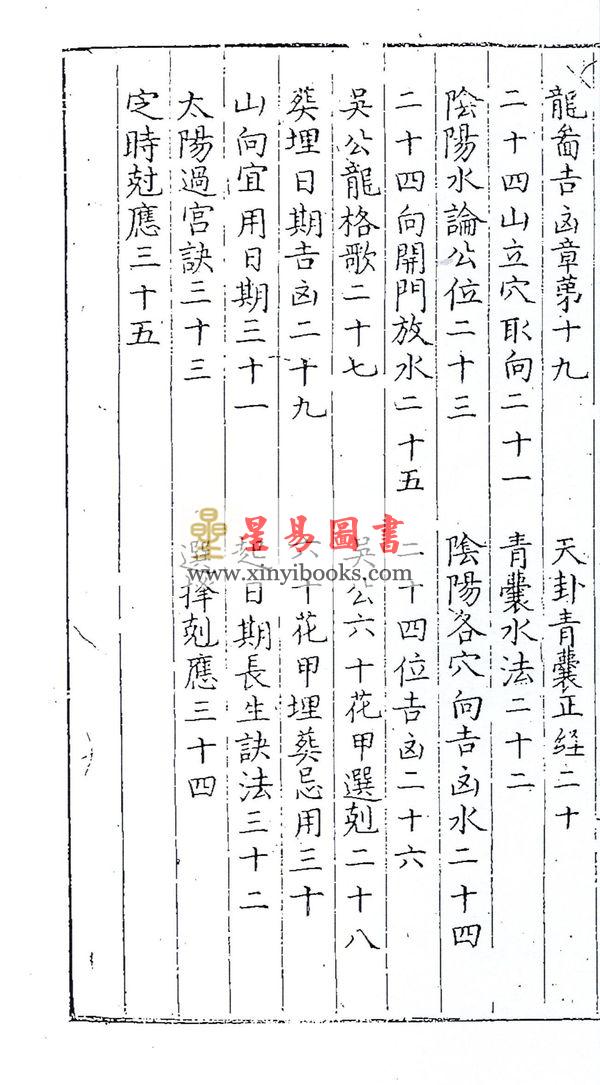 龍畨吉凶章第十九　天卦青囊正経二十
二十四山立穴取向二十一　青囊水法二十二
陰陽水論公位二十三　陰陽各穴向吉凶水二十四
二十四向開門放水二十五　二十四位吉凶二十六
吳公龍格歌二十七　吳公六十花甲選剋二十八
葬埋日期吉凶二十九　六十花甲埋葬忌用三十
山向宜用日期三十一　起日期長生訣法三十二
太陽過宮訣三十三　選擇剋應三十四
定時尅應三十五
星易圖書
www.xinyibooks.com